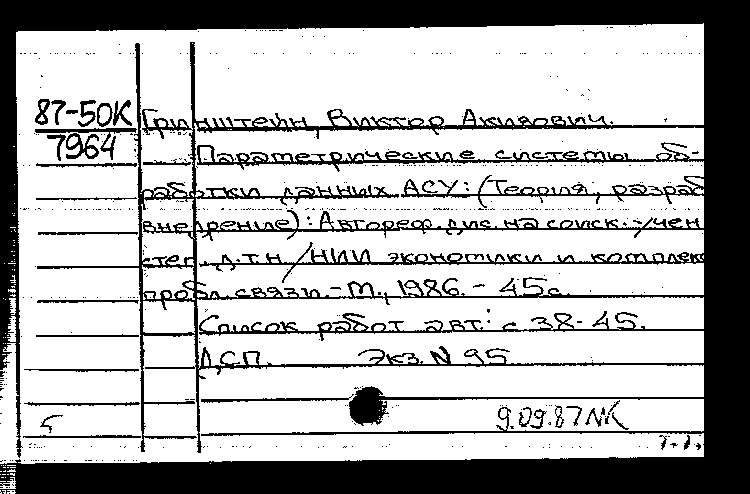 87-50К
7964
Гринштейн, Виктор Акизович.
Параметрические системы об-
работки данных АСУ: (Теория, разраб
внедрение): Автореф. дис. на соиск. учен
степ. д.т.н /НИИ экономики и комплек
пробл. связи.-М., 1986.- 45с.
Список работ авт.: с 38-45.
Д.С.П. Экз. N 95
5 9.09.87